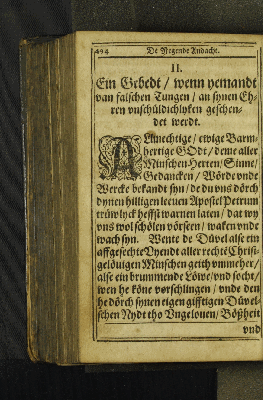 494 De Negende Andacht.
II.
Ein Gebedt / wenn yemandt
van falschen Tungen / an synen Eh-
ren vnschüldichlyken geschen-
det werdt.
ALmechtige / ewige Barm-
hertige GOdt / deme aller
Minschen Herten / Sinne /
Gedancken / Wörde vnde
Wercke bekandt syn / de du vns dörch
dynen hilligen leeuen Apostel Petrum
trüwlyck heffst warnen laten / dat wy
vns wol schölen vörseen / waken vnde
wach syn. Wente de Düvel alse ein
affgesechte Vyendt aller rechte Christ-
gelöuigen Minschen geith vmmeher /
alse ein brummende Löwe / vnd socht /
wen he köne vorschlingen / vnde den
he dörch synen eigen gifftigen Düvel-
schen Nydt tho Vngelouen / Bößheit
vnd